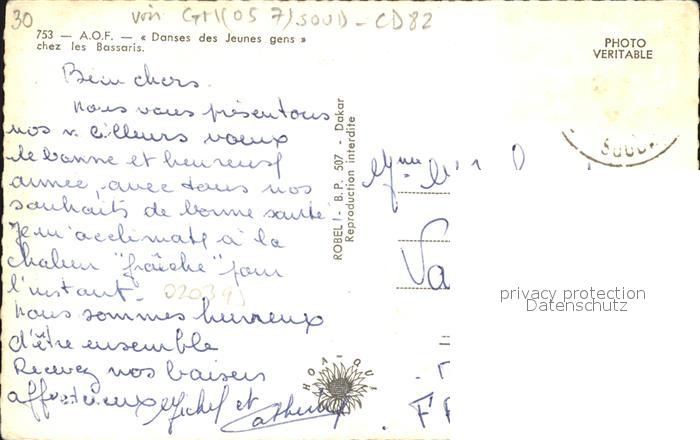 30
voir
753 — A.O.F. — « Danses des Jeunes gens »
chez les Bassaris.
PHOTO
VERITABLE
Bien chers.
Nous vous présentons
nos meilleurs voeux
de bonne et heureuse
année, avec tous nos
souhaits de bonne santé.
Je m'acclimate à la
chaleur "fraîche" pour
l'instant.
Nous sommes heureux
d'être ensemble
Recevez nos baisers
affectueux Michel et
Catherine
ROBEL! - B.P. 507 - Dakar
Reproduction interdite
HOA-QUI
Va
privacy protection
Datenschutz